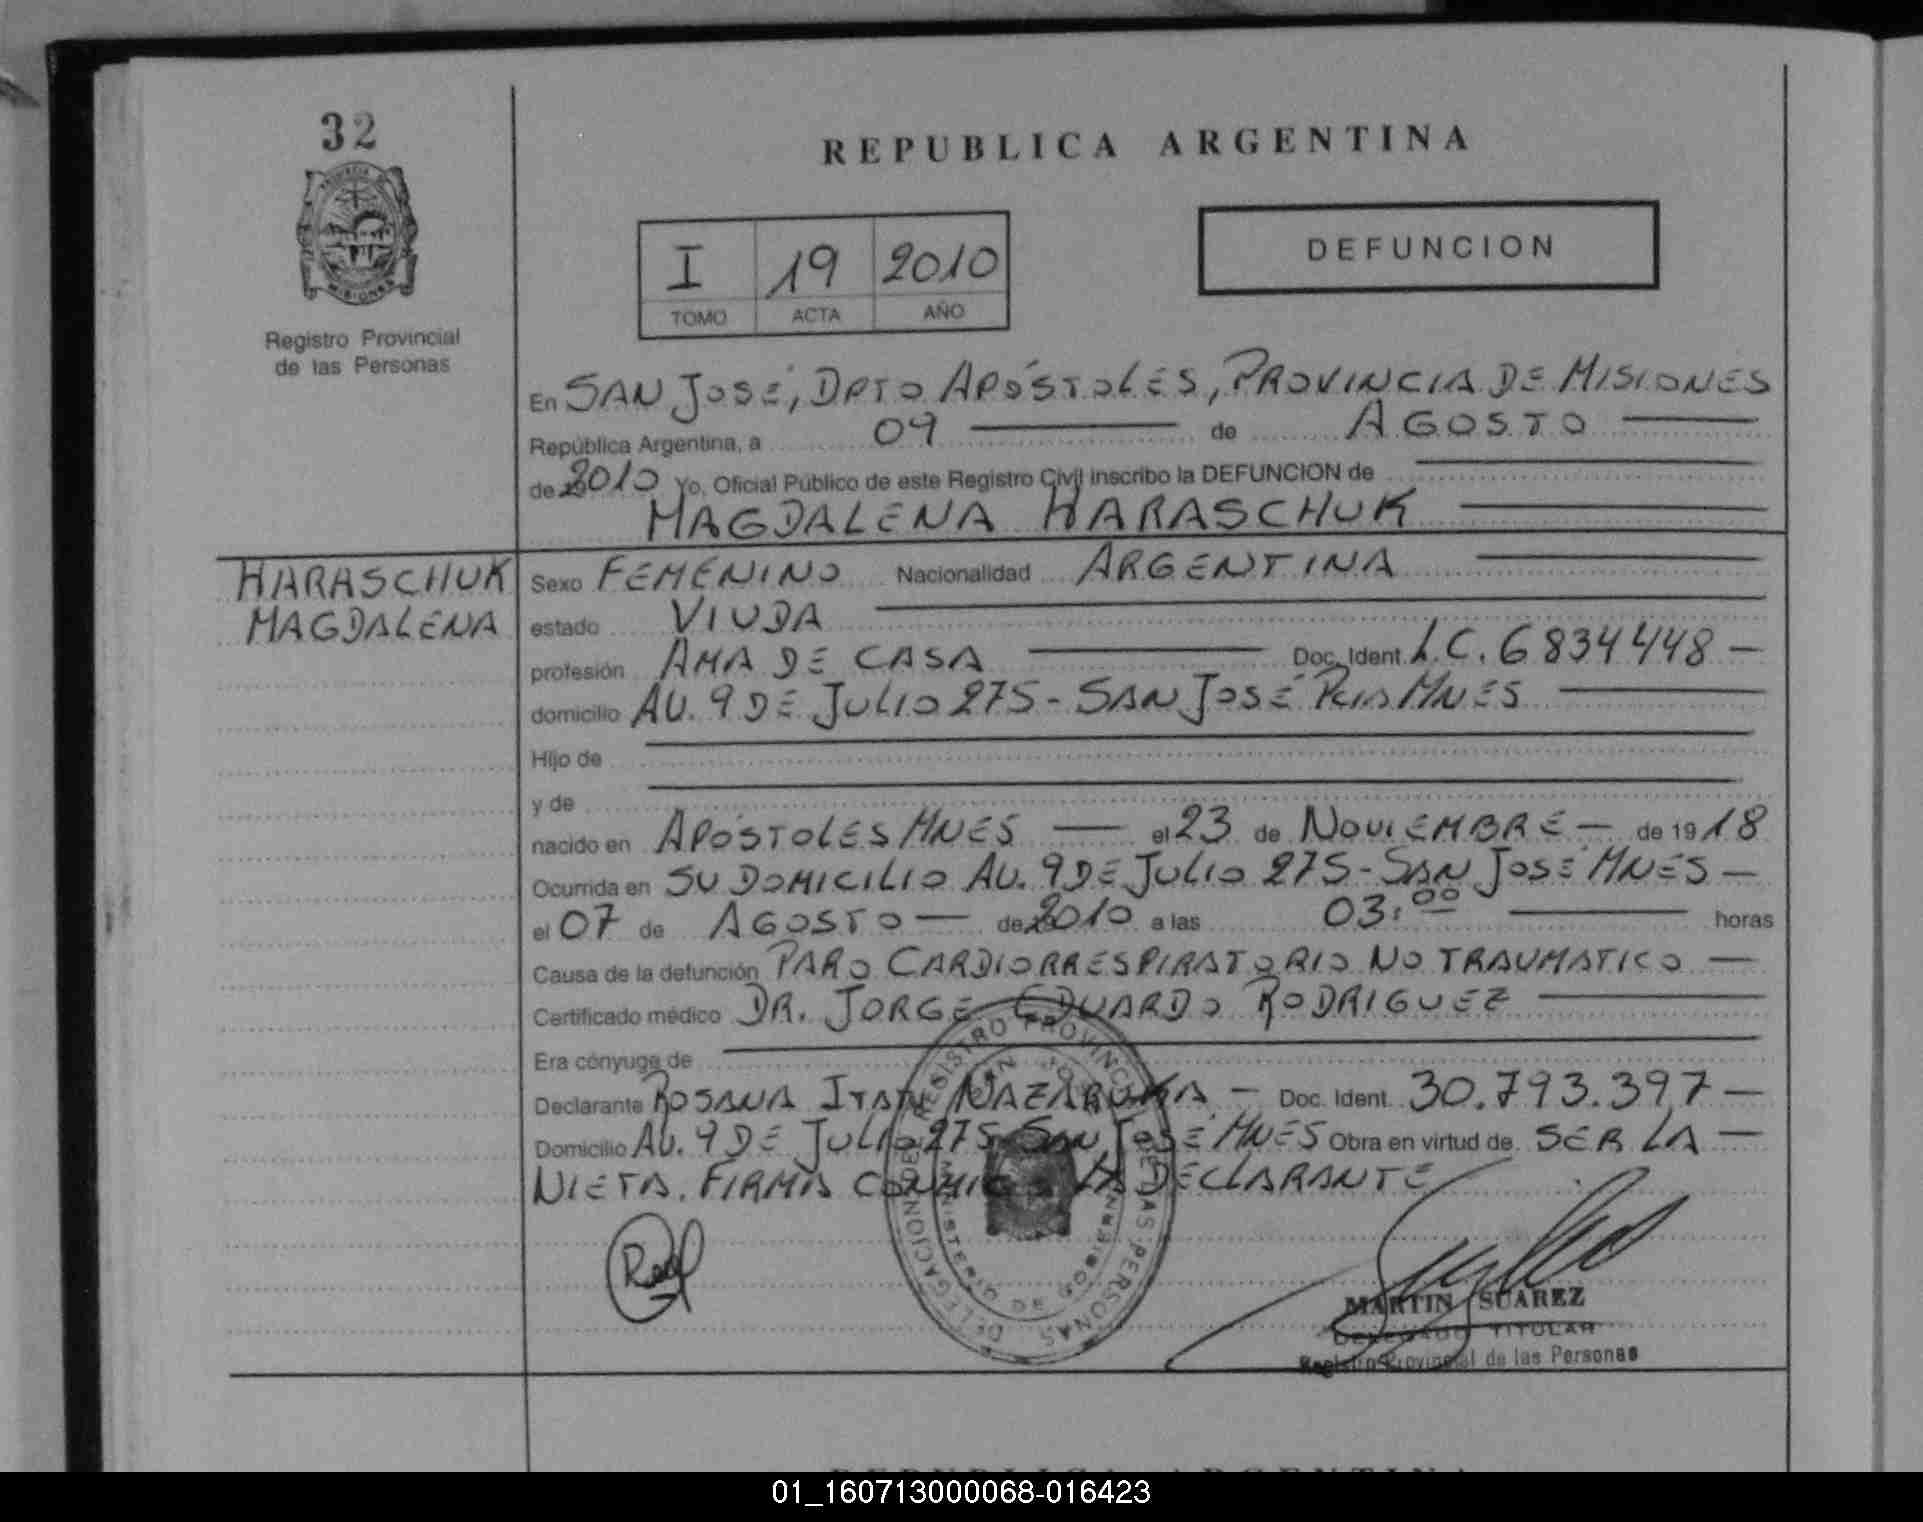 32
PROVINCIA DE
MISIONES
Registro Provincial
de las Personas
REPUBLICA ARGENTINA
I 19 2010
TOMO ACTA AÑO
DEFUNCION
En SAN JOSÉ, DPTO APÓSTOLES, PROVINCIA DE MISIONES
República Argentina, a 09 — de AGOSTO —
de 2010 Yo, Oficial Público de este Registro Civil inscribo la DEFUNCION de —
MAGDALENA HARASCHUK —
HARASCHUK
MAGDALENA
Sexo FEMENINO Nacionalidad ARGENTINA —
estado VIUDA —
profesión AMA DE CASA — Doc. Ident. L.C. 6834448 —
domicilio AV. 9 DE JULIO 275 - SAN JOSÉ PCIA MNES —
Hijo de —
y de —
nacido en APÓSTOLES MNES — el 23 de NOVIEMBRE — de 1918
Ocurrida en SU DOMICILIO AV. 9 DE JULIO 275 - SAN JOSÉ MNES —
el 07 de AGOSTO — de 2010 a las 03:00 — horas
Causa de la defunción PARO CARDIORRESPIRATORIO NO TRAUMATICO —
Certificado médico DR. JORGE EDUARDO RODRIGUEZ —
Era cónyuge de —
Declarante ROSANA ITATI NAZARUKA — Doc. Ident. 30.793.397 —
Domicilio AV. 9 DE JULIO 275 SAN JOSÉ MNES Obra en virtud de SER LA —
NIETA. FIRMA CONMIGO LA DECLARANTE
DELEGACION DEL REGISTRO PROVINCIAL DE LAS PERSONAS
SAN JOSE
MINISTERIO DE GOBIERNO
MARTIN SUAREZ
DELEGADO TITULAR
Registro Provincial de las Personas
REPUBLICA ARGENTINA
01_160713000068-016423